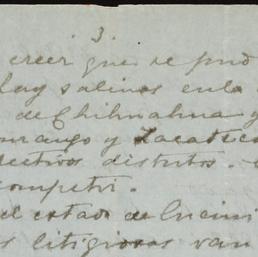 3.
creer que se pud
hay salinas en la
de Chihuahua y
urango y Zacatecas
ectivos distritos.
competri.
el estado de
s litigiosas van